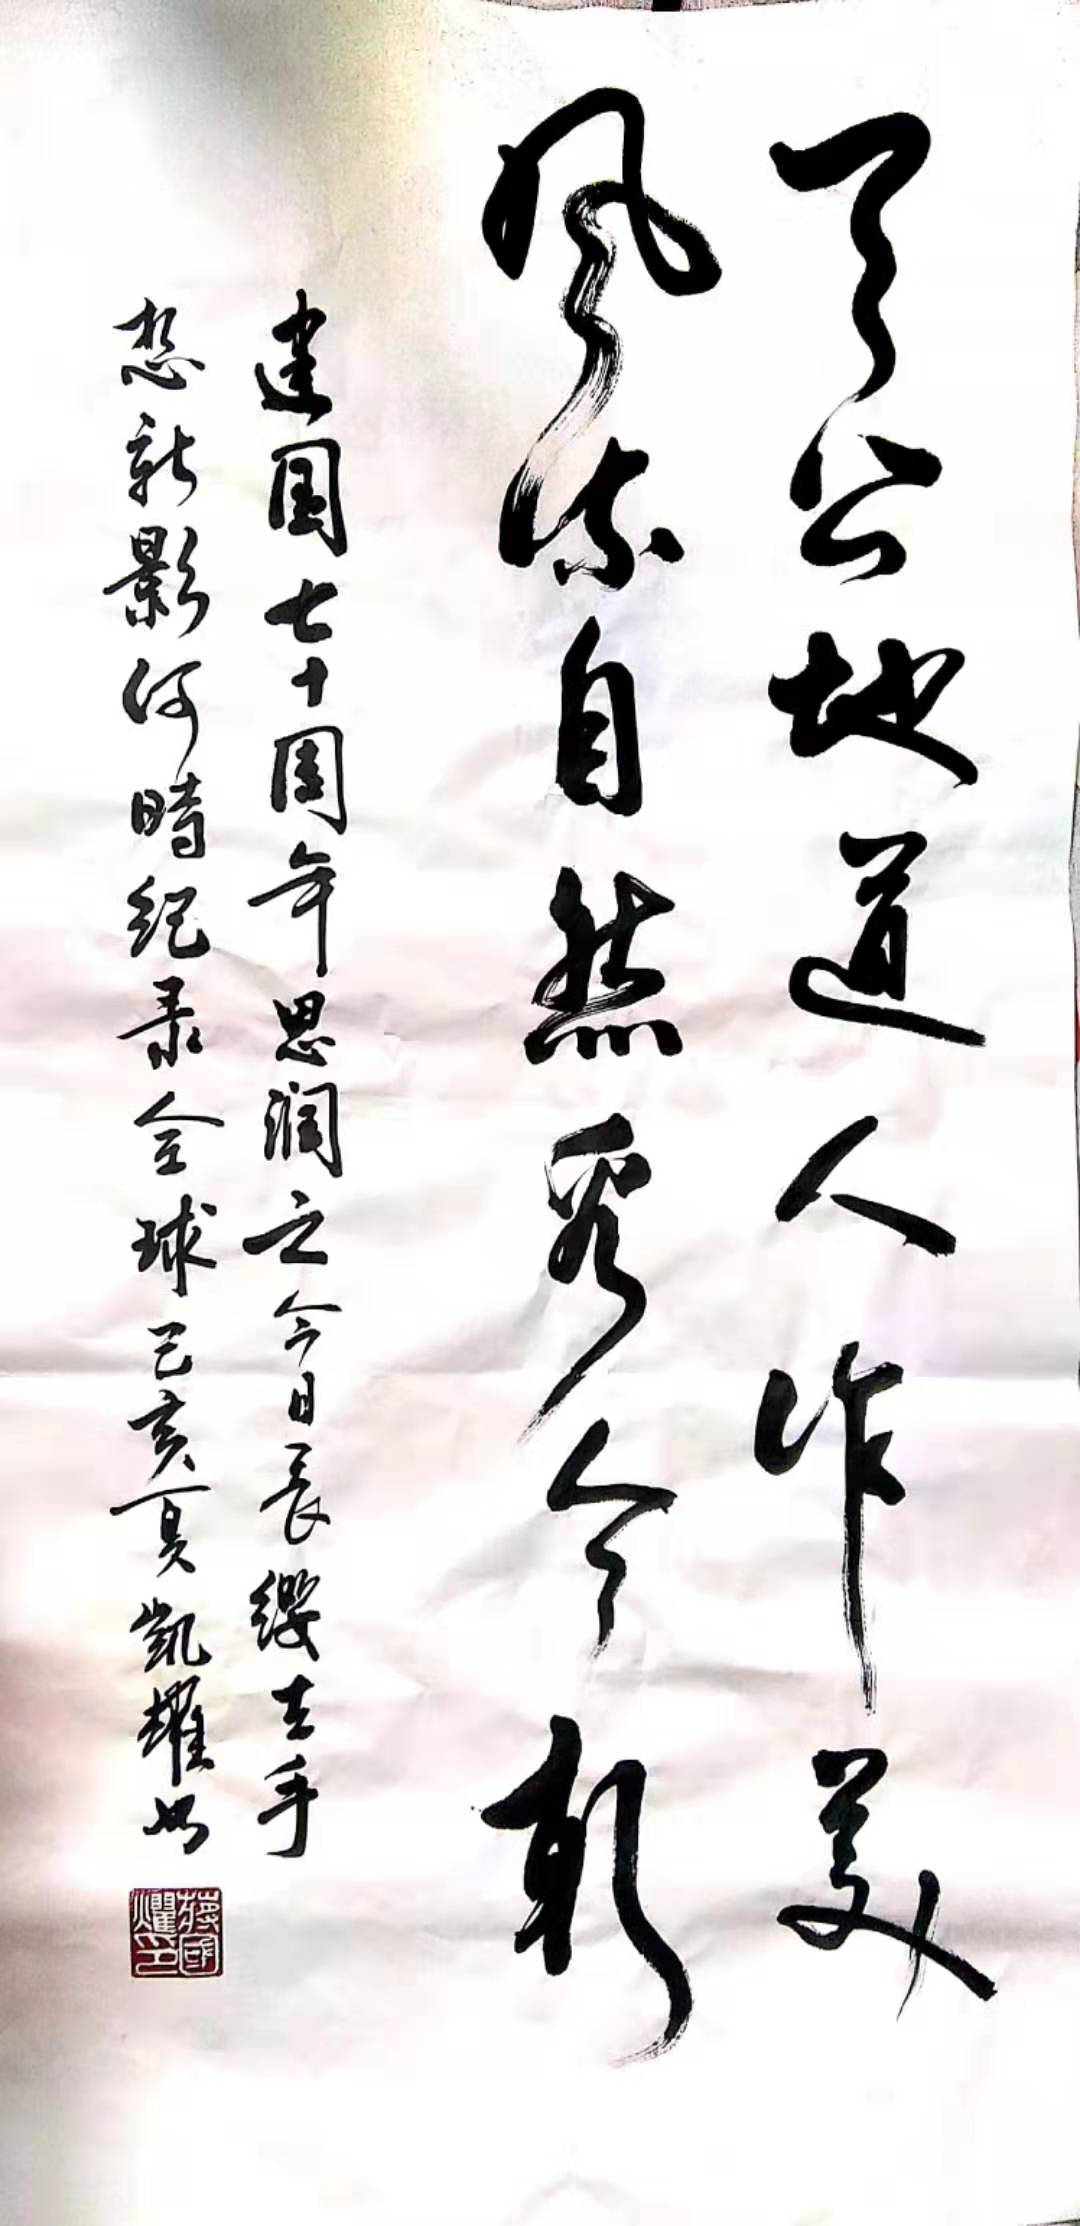 天公地道人作美
风流自然看今朝
建国七十周年思润之今日长缨在手
想新影何时纪录全球己亥夏凯耀书
蒋国耀印